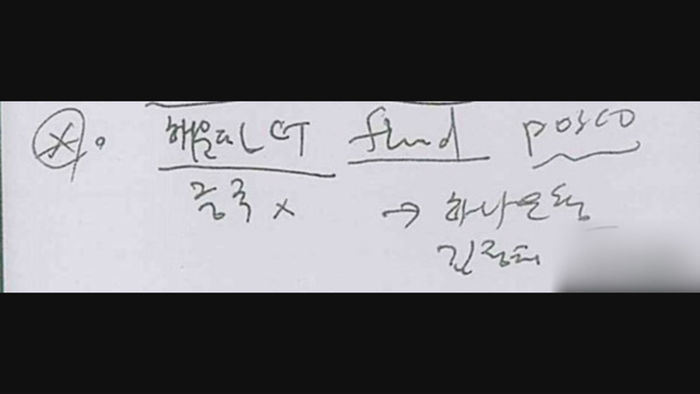 ⓧ. 해운대 LCT fund POSCO
중국 x → 하나은행
김정태